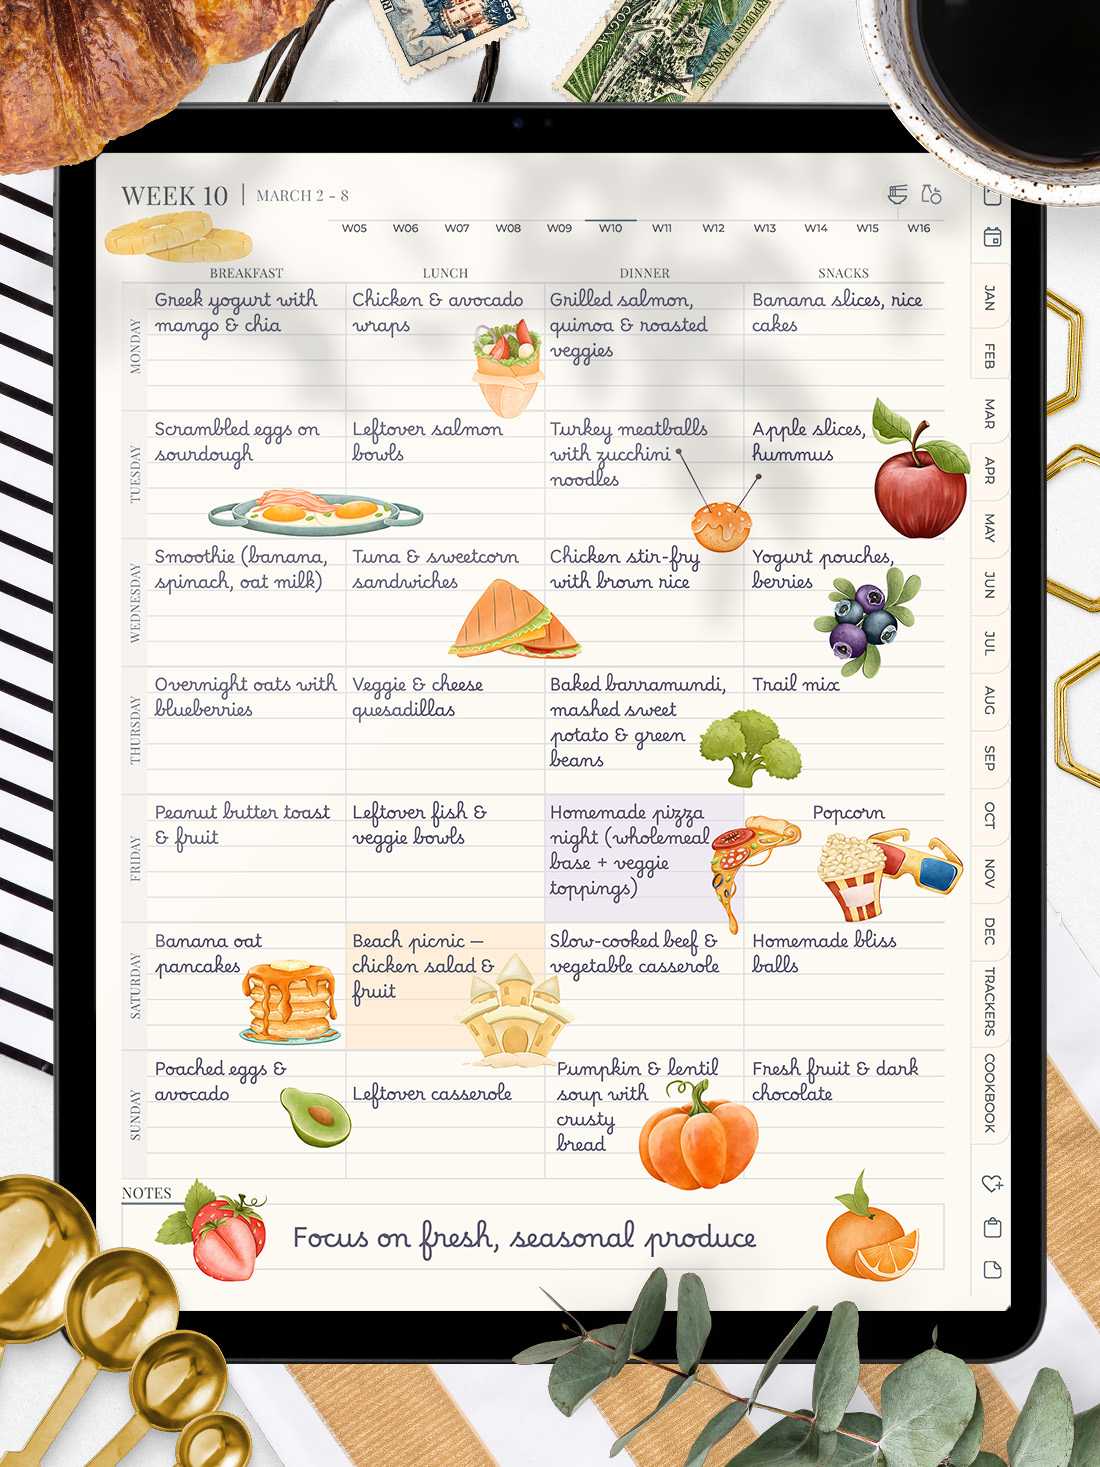 COGNAC
REPUBLIQUE FRANÇAISE
WEEK 10 | MARCH 2 - 8
W05 W06 W07 W08 W09 W10 W11 W12 W13 W14 W15 W16
BREAKFAST LUNCH DINNER SNACKS
MONDAY
Greek yogurt with
mango & chia
Chicken & avocado
wraps
Grilled salmon,
quinoa & roasted
veggies
Banana slices, rice
cakes
TUESDAY
Scrambled eggs on
sourdough
Leftover salmon
bowls
Turkey meatballs
with zucchini
noodles
Apple slices,
hummus
WEDNESDAY
Smoothie (banana,
spinach, oat milk)
Tuna & sweetcorn
sandwiches
Chicken stir-fry
with brown rice
Yogurt pouches,
berries
THURSDAY
Overnight oats with
blueberries
Veggie & cheese
quesadillas
Baked barramundi,
mashed sweet
potato & green
beans
Trail mix
FRIDAY
Peanut butter toast
& fruit
Leftover fish &
veggie bowls
Homemade pizza
night (wholemeal
base + veggie
toppings)
Popcorn
SATURDAY
Banana oat
pancakes
Beach picnic –
chicken salad &
fruit
Slow-cooked beef &
vegetable casserole
Homemade bliss
balls
SUNDAY
Poached eggs &
avocado
Leftover casserole
Pumpkin & lentil
soup with
crusty
bread
Fresh fruit & dark
chocolate
NOTES
Focus on fresh, seasonal produce
JAN
FEB
MAR
APR
MAY
JUN
JUL
AUG
SEP
OCT
NOV
DEC
TRACKERS
COOKBOOK